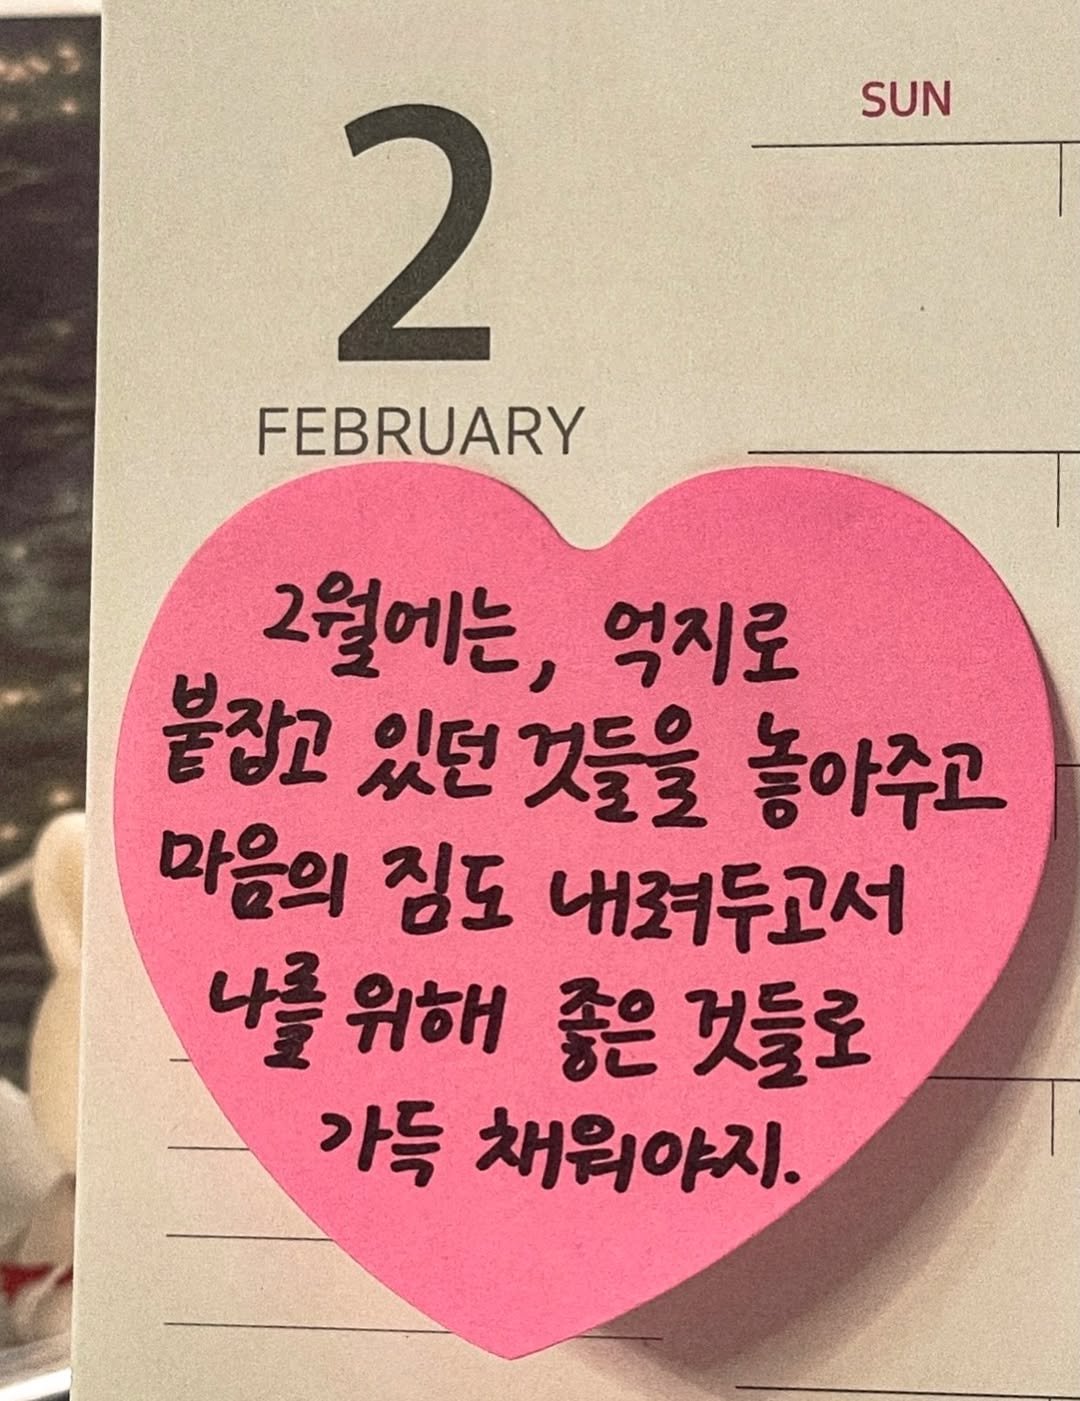 2
FEBRUARY
SUN
2월에는, 억지로
붙잡고 있던 것들을 놓아주고
마음의 짐도 내려두고서
나를 위해 좋은 것들로
가득 채워야지.